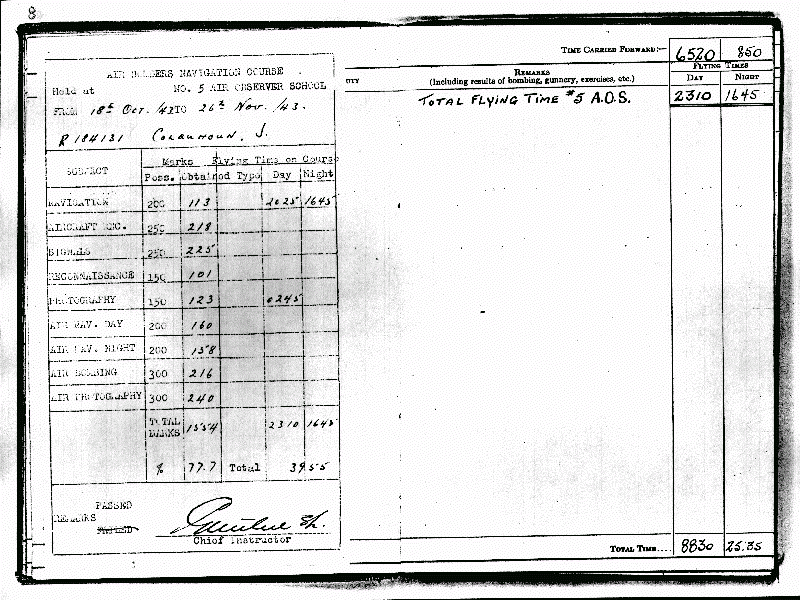 8
AIR BOMBERS NAVIGATION COURSE.
Held at NO. 5 AIR OBSERVER SCHOOL
FROM 18th Oct. /43 TO 26th Nov. /43.
R 184131 J.
SUBJECT Marks Flying Time on Course
Poss. Obtained Type Day Night
NAVIGATION 200 113 2025 1645
AIRCRAFT REC. 250 218
SIGNALS 250 225
RECONNAISSANCE 150 101
PHOTOGRAPHY 150 123 0245
AIR NAV. DAY 200 160
AIR NAV. NIGHT 200 158
AIR BOMBING 300 216
AIR PHOTOGRAPHY 300 240
TOTAL MARKS 1554 2310 1645
% 77.7 Total 3955
PASSED
REMARKS FAILED
Chief Instructor
TIME CARRIED FORWARD:— 6520 850
FLYING TIMES
REMARKS
(Including results of bombing, gunnery, exercises, etc.)
DAY NIGHT
TOTAL FLYING TIME #5 A.O.S. 2310 1645
TOTAL TIME.... 8830 25.35